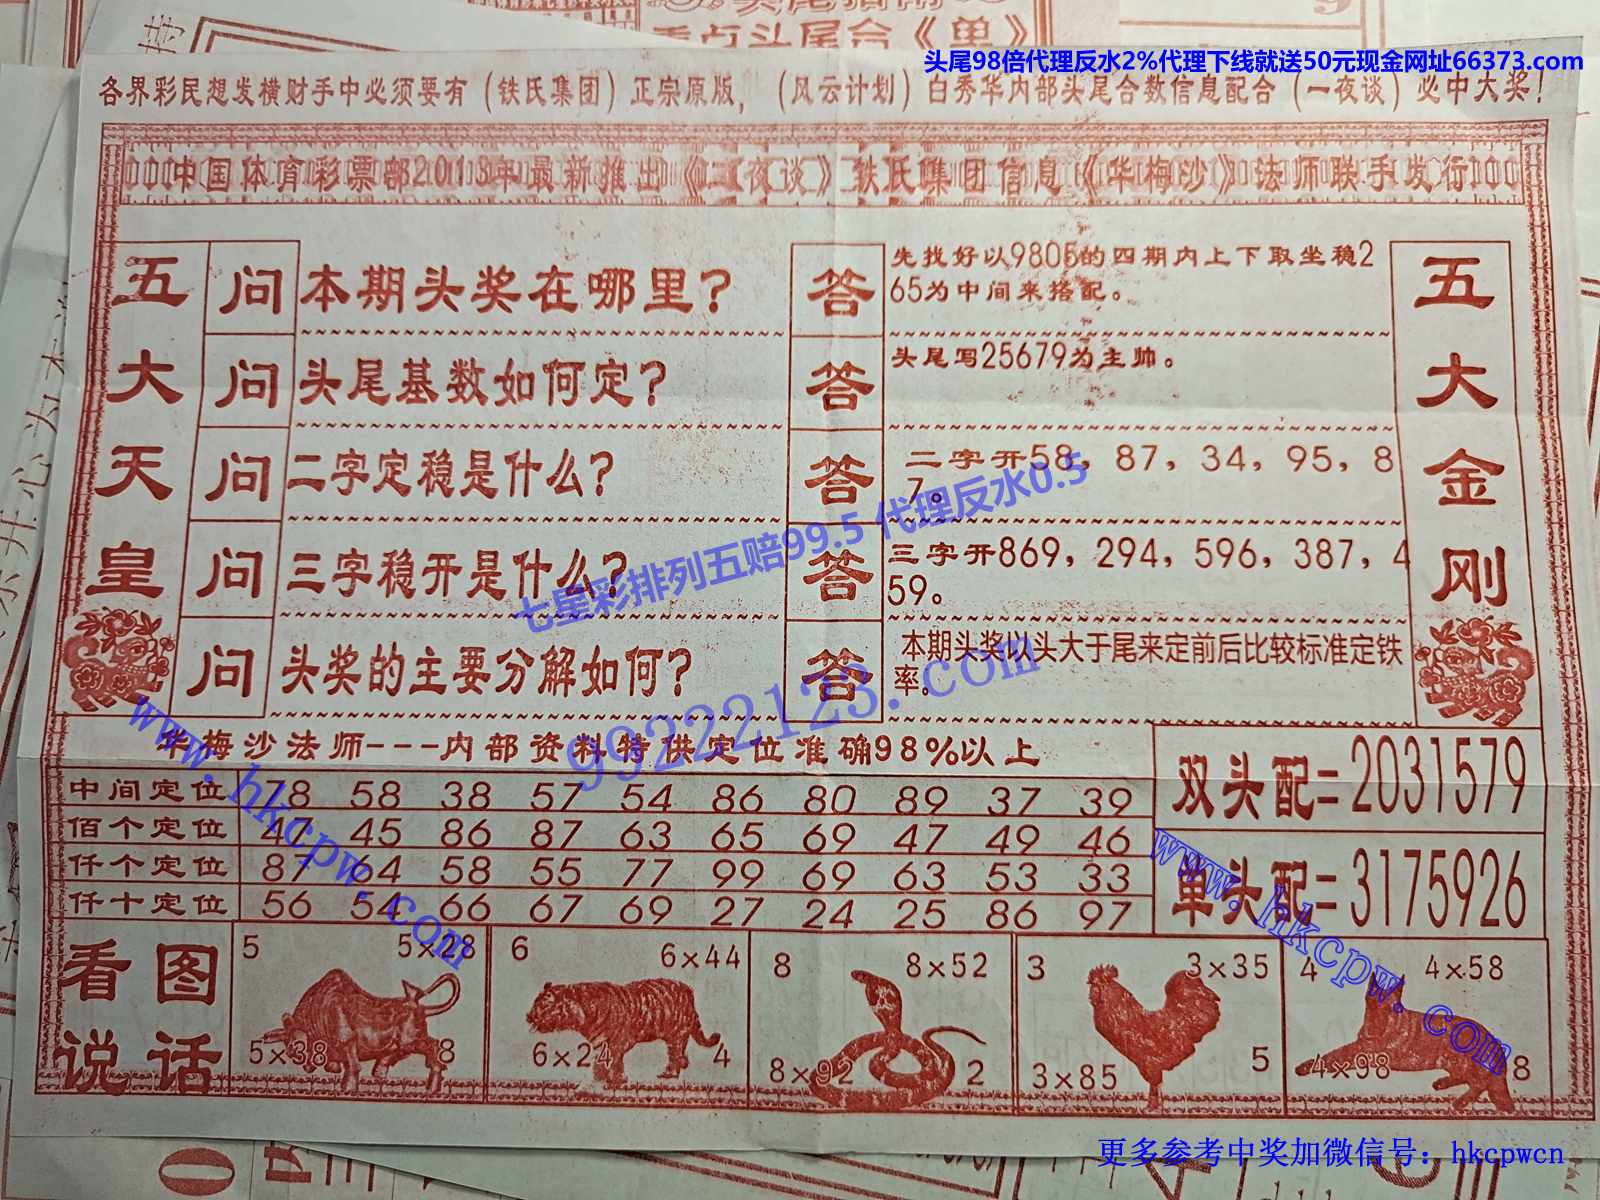 头尾98倍代理反水2%代理下线就送50元现金网址66373.com
各界彩民想发横财手中必须要有（铁氏集团）正宗原版，（风云计划）白秀华内部头尾合数信息配合（一夜谈）必中大奖！
中国体育彩票部2013年最新推出《一夜谈》铁氏集团信息《华梅沙》法师联手发行
五大天皇
问 本期头奖在哪里？
答 先找好以9805的四期内上下取坐稳2
65为中间来搭配。
问 头尾基数如何定？
答 头尾写25679为主帅。
问 二字定稳是什么？
答 二字开58，87，34，95，8
7。
问 三字稳开是什么？
答 三字开869，294，596，387，4
59。
问 头奖的主要分解如何？
答 本期头奖以头大于尾来定前后比较标准定铁
率。
五大金刚
七星彩排列五赔99.5 代理反水0.5
99222123.com
www.hkcpw.com
华梅沙法师---内部资料特供定位准确98%以上
中间定位 78 58 38 57 54 86 80 89 37 39
佰个定位 47 45 86 87 63 65 69 47 49 46
仟个定位 87 64 58 55 77 99 69 63 53 33
仟十定位 56 54 66 67 69 27 24 25 86 97
双头配=2031579
单头配=3175926
www.hkcpw.com
看图
说话
5 5×28
5×38 8
6 6×44
6×24 4
8 8×52
8×92 2
3 3×35
3×85 5
4 4×58
4×98 8
更多参考中奖加微信号：hkcpwcn